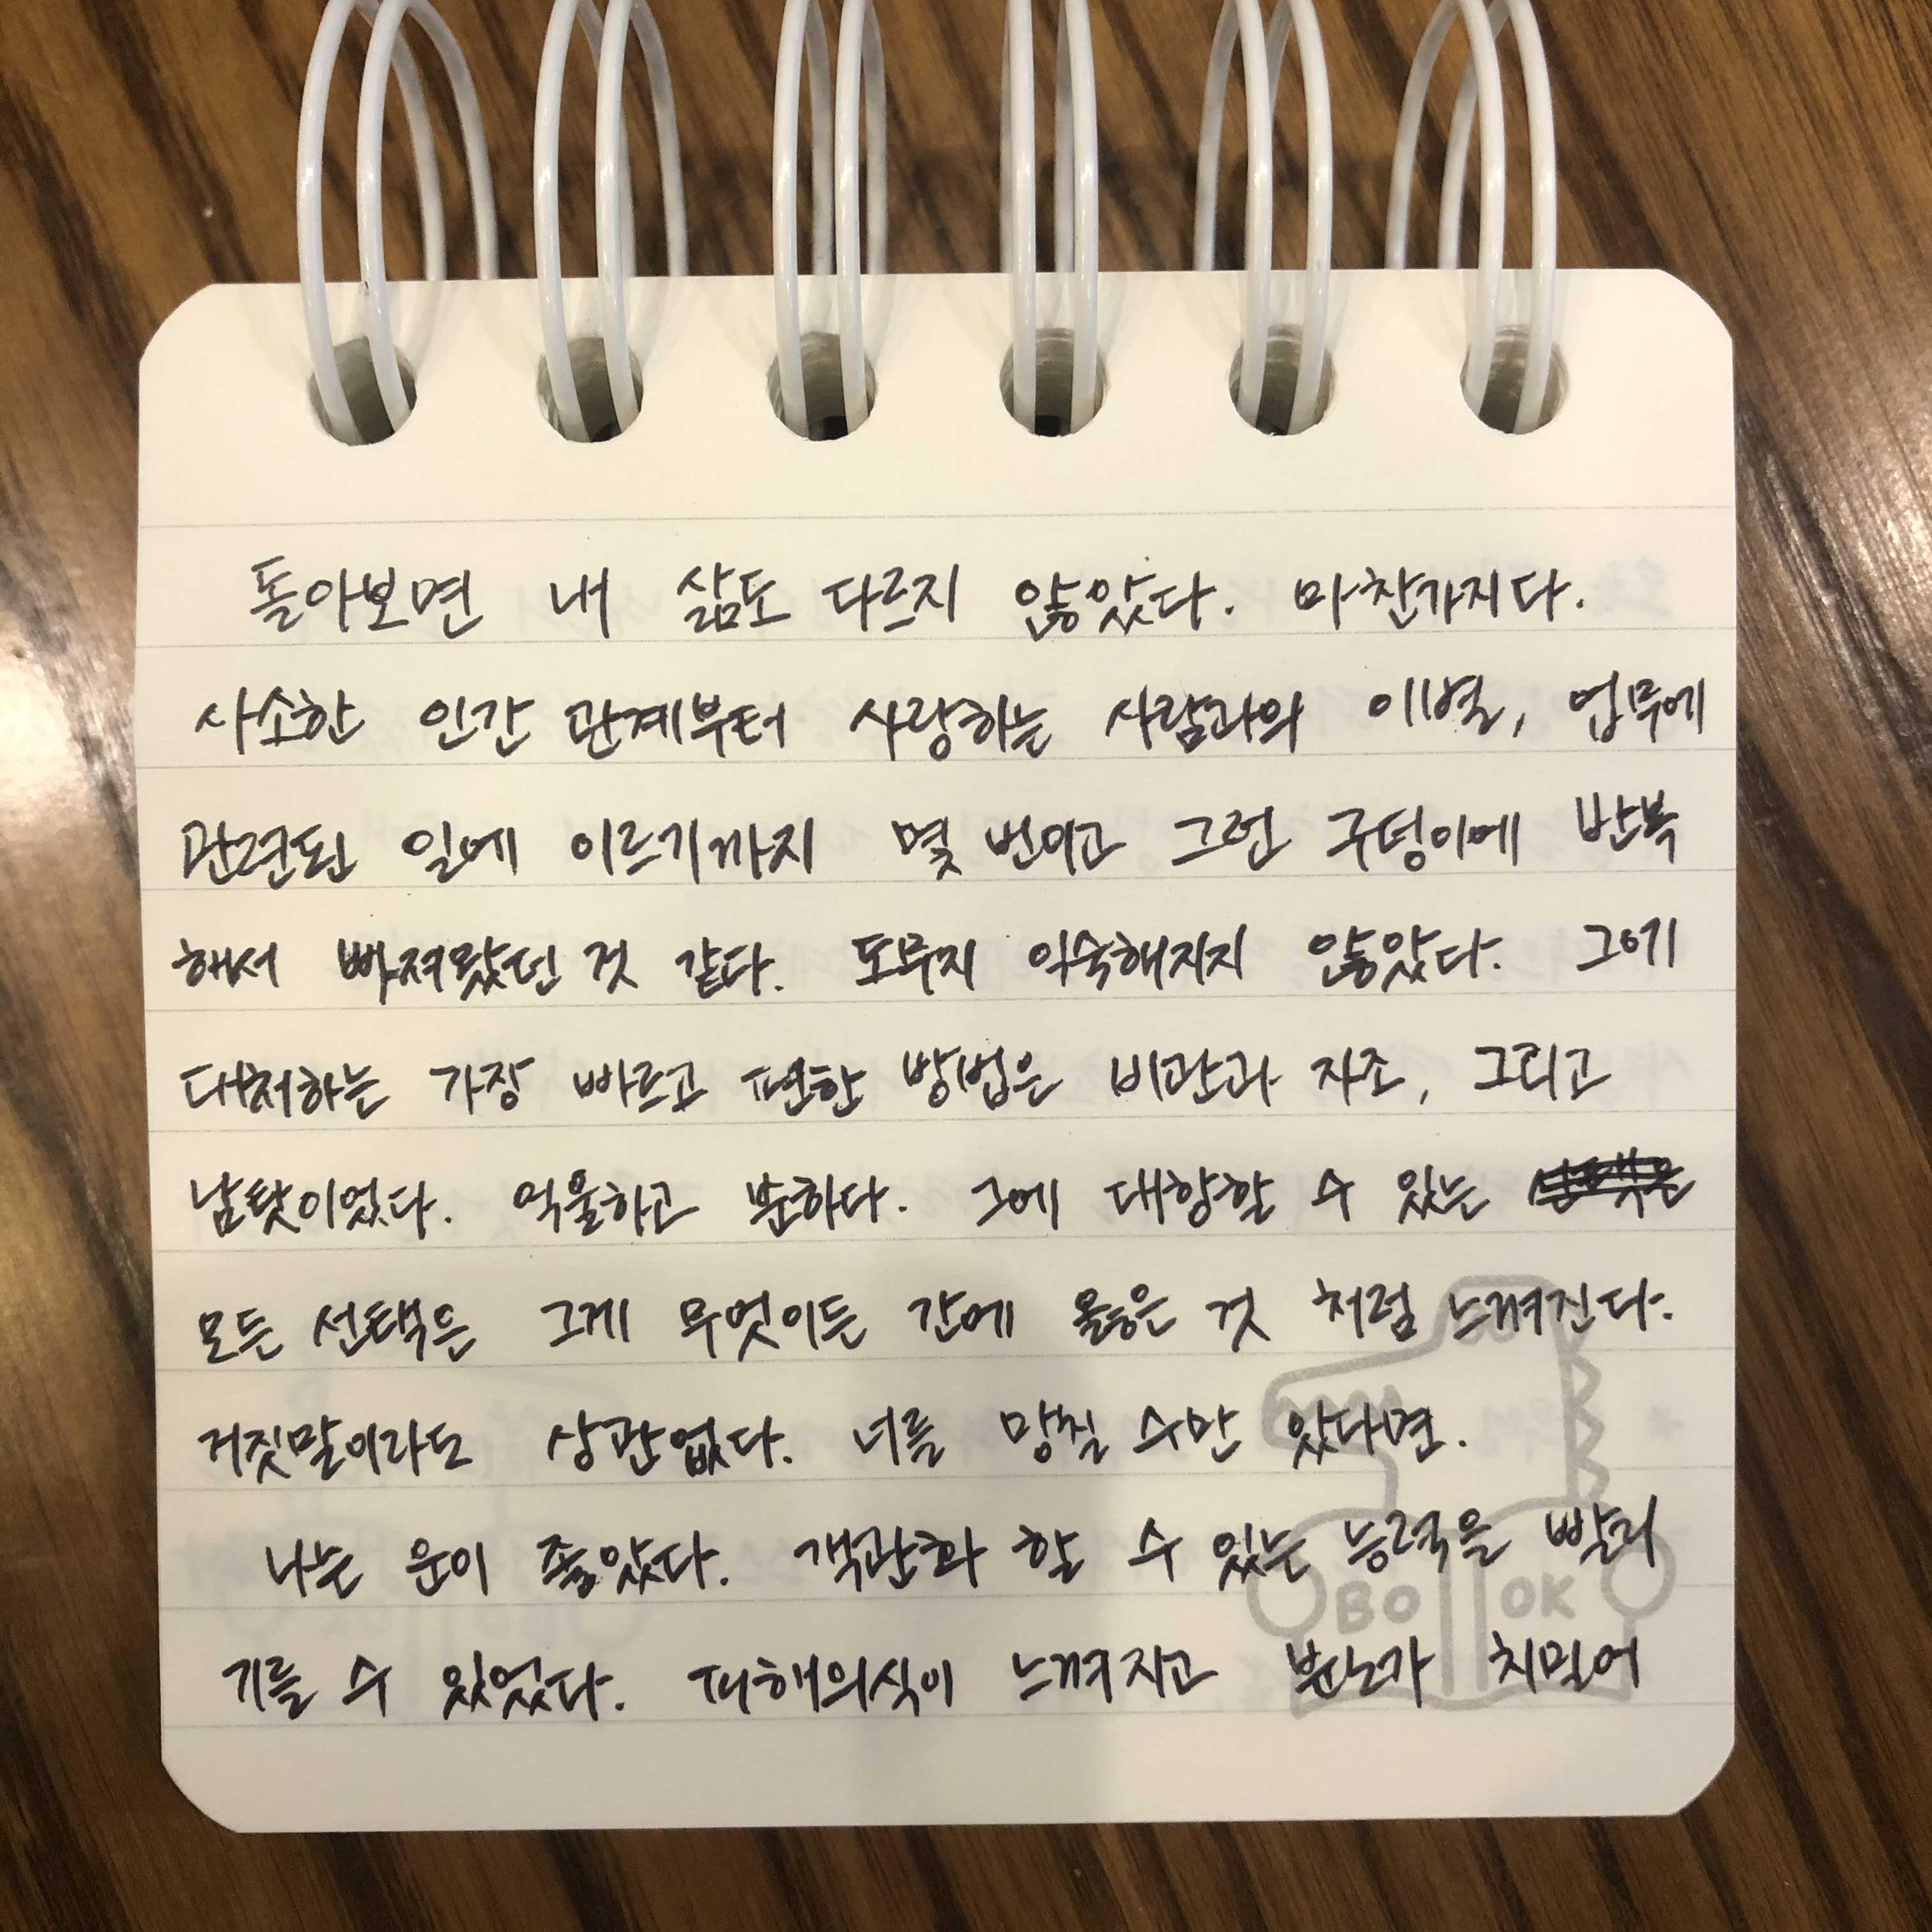 돌아보면 내 삶도 다르지 않았다. 마찬가지다.
사소한 인간 관계부터 사랑하는 사람과의 이별, 업무에
관련된 일에 이르기까지 몇 번이고 그런 구덩이에 반복
해서 빠져왔던 것 같다. 도무지 익숙해지지 않았다. 그에
대처하는 가장 빠르고 편한 방법은 비관과 자조, 그리고
남탓이었다. 억울하고 분하다. 그에 대항할 수 있는
모든 선택은 그게 무엇이든 간에 옳은 것 처럼 느껴진다.
거짓말이라도 상관없다. 너를 망칠 수만 있다면.
나는 운이 좋았다. 객관화 할 수 있는 능력을 빨리
기를 수 있었다. 피해의식이 느껴지고 분노가 치밀어
BO OK